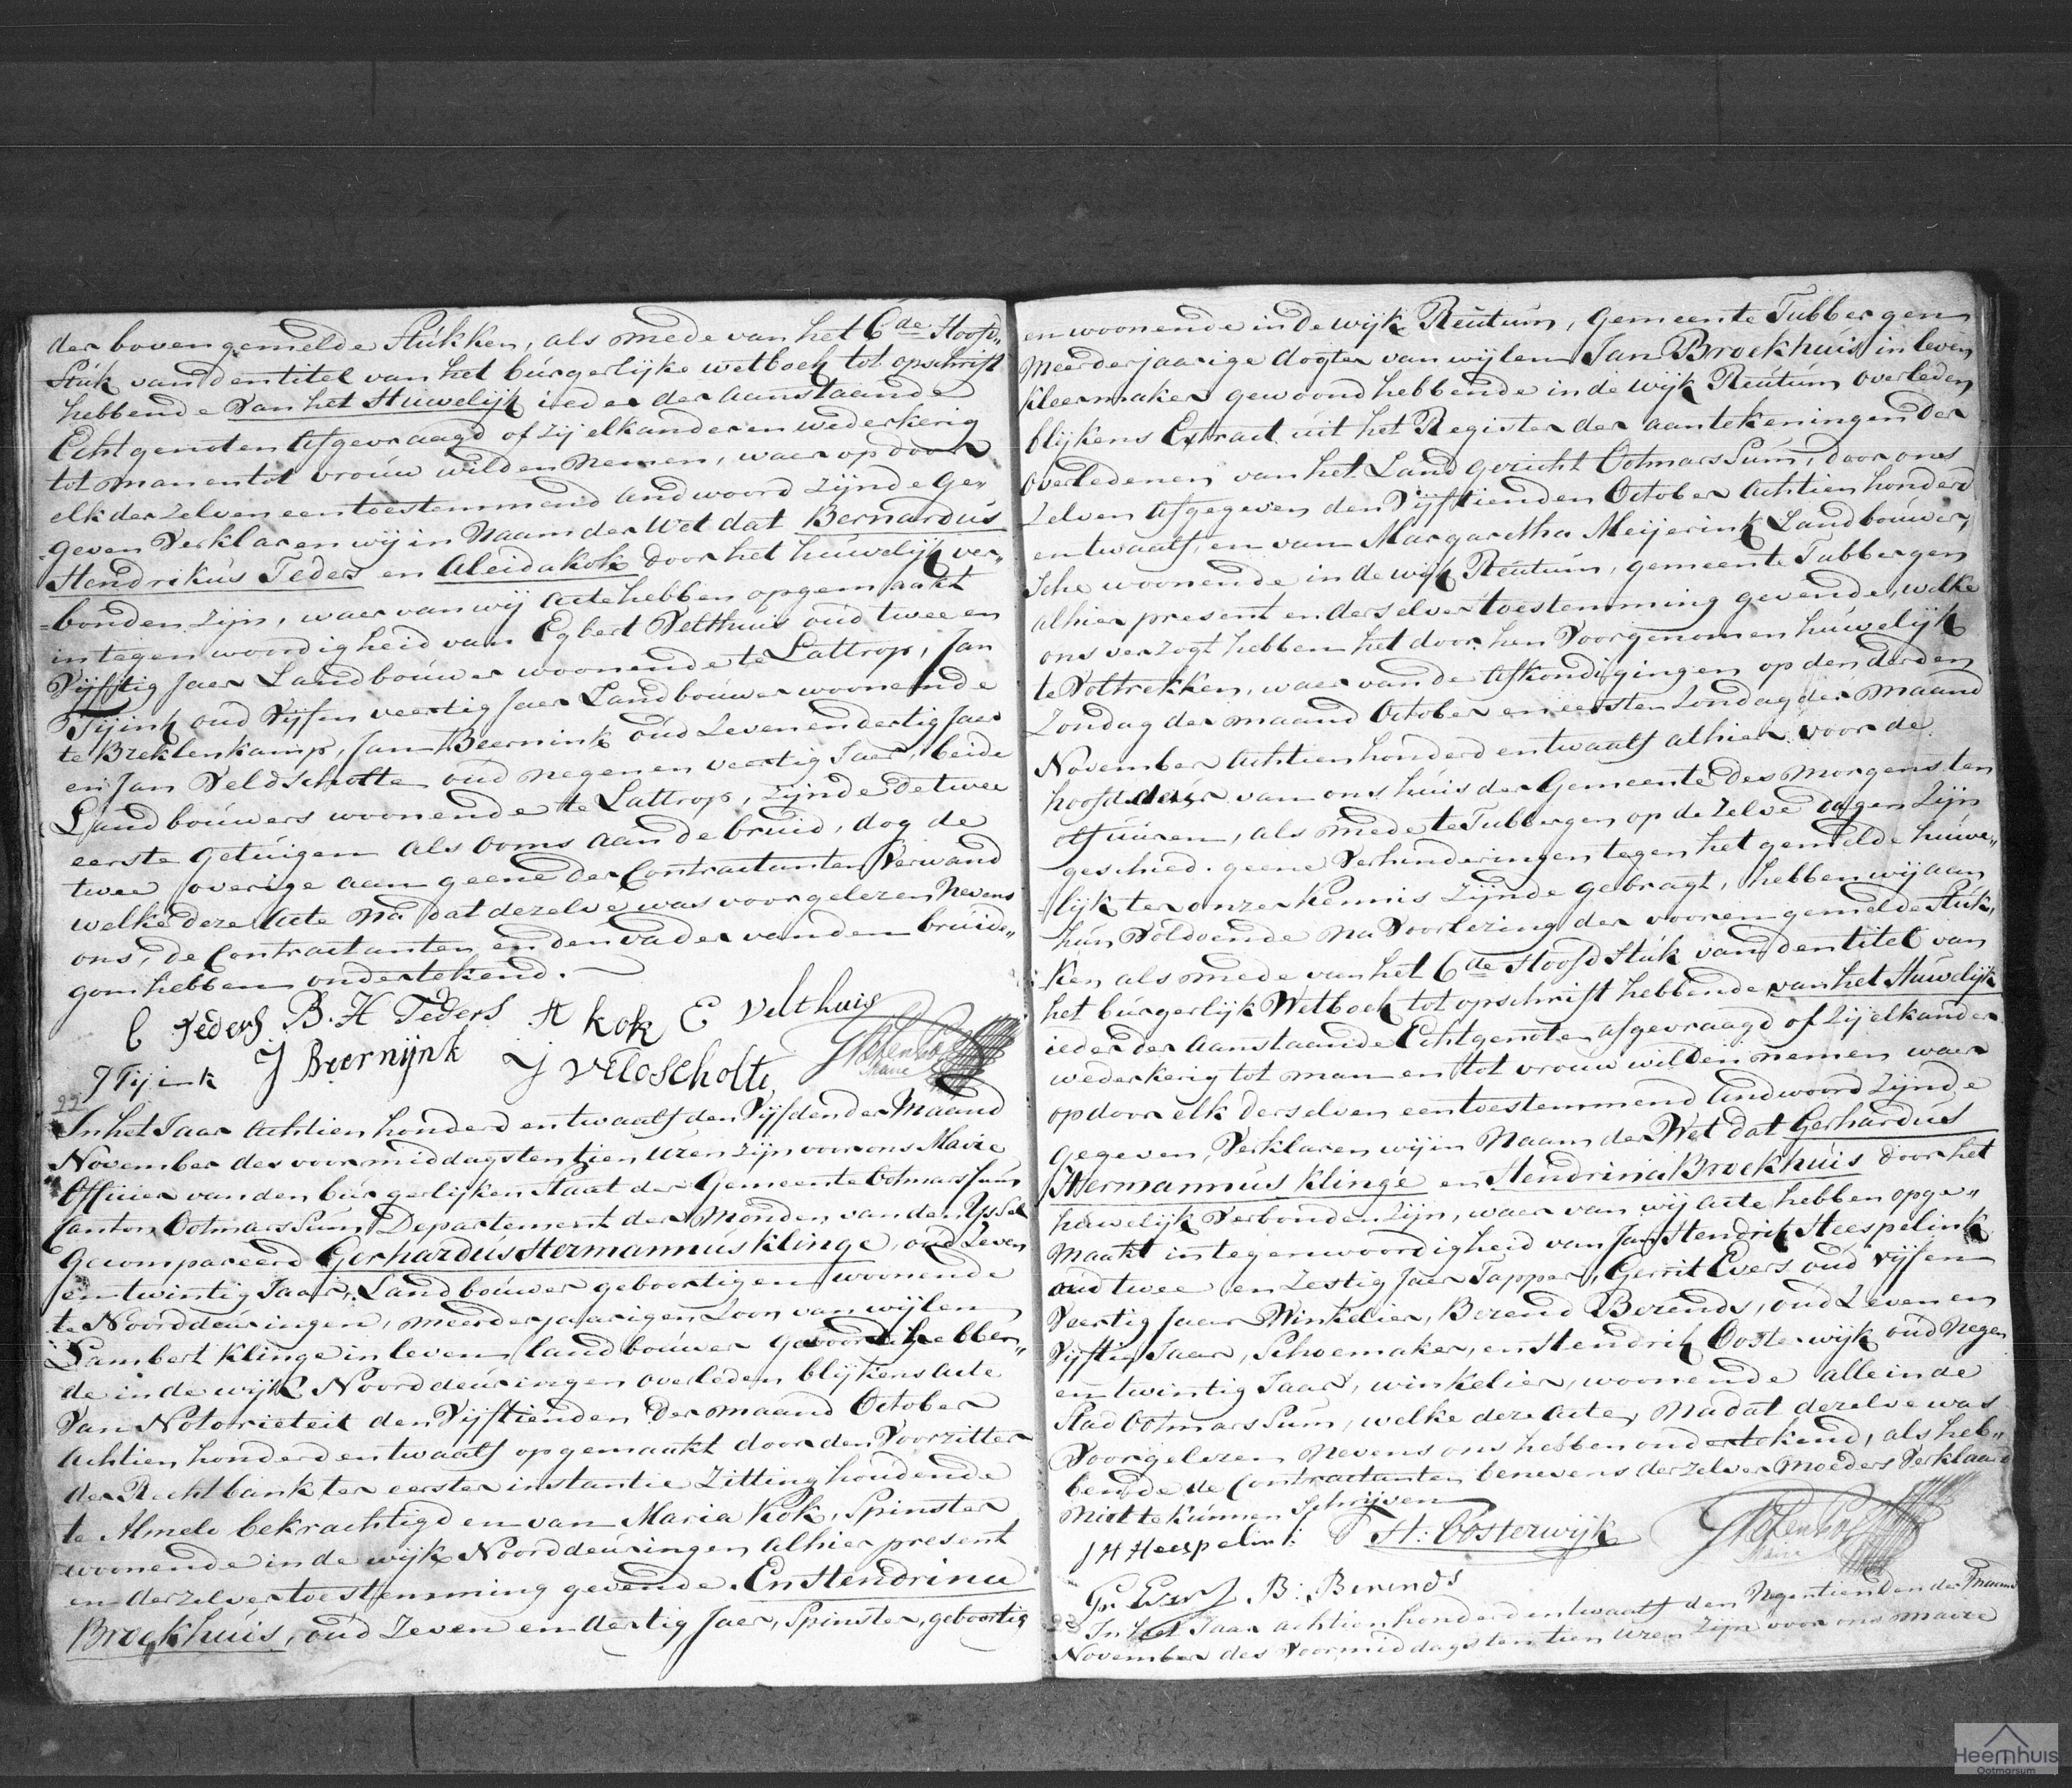 der bovengemelde Stukken, als mede van het 6de Hoofd„
Stuk van den titel van het burgerlijke wetboek tot opschrift
hebbende Van het Huwelijk ieder der aanstaande
Echtgenoten Afgevraagd of zij elkanderen wederkerig
tot man en tot vrouw wilden nemen, waer op door
elk derzelven een toestemmend andwoord zijnde ge„
geven Verklaren wij in Naam der Wet dat Bernardus
Hendrikus Teders en Aleida Kok door het huwelijk ver„
bonden zijn, waer van wij acte hebben opgemaakt
in tegenwoordigheid van Egbert Velthuis oud twee en
Vijftig Jaer Landbouwer woonende te Lattrop, Jan
Tijink oud Vijf en veertig Jaer Landbouwer woonende
te Breklenkamp, Jan Beernink oud Zeven en dertig Jaer
en Jan Veldscholte oud negen en veertig Jaer, beide
Landbouwers woonende te Lattrop, zijnde de twee
eerste getuigen als ooms aan de bruid, dog de
twee overige aan geene der Contractanten Verwand
welke deze Acte na dat dezelve was voorgelezen Nevens
ons, de Contractanten en den vader van den bruide„
gom hebben ondertekend.
C Teders B. H Teders A Kok E Velthuis
J Tijink J Beernijnk J Veldscholte
Maire
22
In het Jaar Achtien honderd en twaalf den Vijfden der Maand
November des voormiddags ten tien uren zijn voor ons Maire
Officier van den burgerlijken Staat der Gemeente Ootmarssum
Canton Ootmarssum Departement der Monden van den Yssel
Gecompareerd Gerhardus Hermannus Klinge, oud Zeven
en twintig Jaar, Landbouwer geboortig en woonende
te Noorddeuringen, meerderjaarigen Zoon van wijlen
Lambert Klinge in leven landbouwer gewoond hebben„
de in de wijk Noorddeuringen overleden blijkens Acte
Van Notorieteit den Vijftienden der maand October
Achtien honderd en twaalf opgemaakt door den Voorzitter
der Rechtbank ter eerster instantie Zitting houdende
te Almelo bekrachtigd en van Maria Kok, Spinster
woonende in de wijk Noorddeuringen alhier present
en derzelver toestemming gevende. En Hendrina
Broekhuis, oud Zeven en dertig Jaer, Spinster, geboortig
en woonende in de wijk Reutum, Gemeente Tubbergen
Meerderjaarige dogter van wijlen Jan Broekhuis in leven
kleermaker gewoond hebbende in de wijk Reutum overleden
blijkens Extract uit het Register der aantekeningen der
overledenen van het Landgericht Ootmarssum, door ons
Zelven Afgegeven den Vijftienden October Achtien honderd
en twaalf, en van Margaretha Meijerink Landbouwer„
sche woonende in de wijk Reutum, gemeente Tubbergen
alhier present en derselver toestemming gevende, welke
ons verzogt hebben het door hen Voorgenomen huwelijk
te Voltrekken, waer van de Afkondigingen op den derden
Zondag der maand October en eersten Zondag der maand
November Achtien honderd en twaalf alhier voor de
hoofddeur van ons huis der Gemeente des Morgens ten
elf uuren, als mede te Tubbergen op de Zelve dagen Zijn
geschied. geene Verhinderingen tegen het gemelde huwe„
lijk ter onzer Kennis Zijnde gebragt, hebben wij aan
hun Voldoende na Voorlezing der vooren gemelde Stuk„
ken als mede van het 6de Hoofdstuk van den titel van
het burgerlijk Wetboek tot opschrift hebbende van het Huwelijk
ieder der Aanstaande Echtgenoten afgevraagd of Zij elkander
wederkerig tot man en tot vrouw wilden nemen waer
op door elk derselven een toestemmend Andwoord Zijnde
gegeven, Verklaren wij in Naam der Wet dat Gerhardus
Hermannus Klinge en Hendrina Broekhuis door het
huwelijk Verbonden Zijn, waer van wij acte hebben opge„
maakt in tegenwoordigheid van Jan Hendrik Heespelink
oud twee en Zestig Jaer Tapper, Gerrit Evers oud Vijf en
Veertig Jaar Winkelier, Berend Berends, oud Zeven en
Vijftig Jaar, Schoemaker, en Hendrik Oosterwijk oud Negen
en twintig Jaar, winkelier, woonende alle in de
Stad Ootmarssum, welke deze Acte, Na dat dezelve was
Voorgelezen Nevens ons hebben ondertekend, als heb„
bende de Contractanten benevens derzelver Moeders Verklaard
niet te kunnen Schrijven
J H Heespelink H: Oosterwijk
Maire
Gr. Evers B: Berends
23 In het Jaar achtien honderd en twaalf den Negentienden der Maand
November des Voormiddags ten tien uren Zijn voor ons Maire
Heemhuis
Ootmarsum